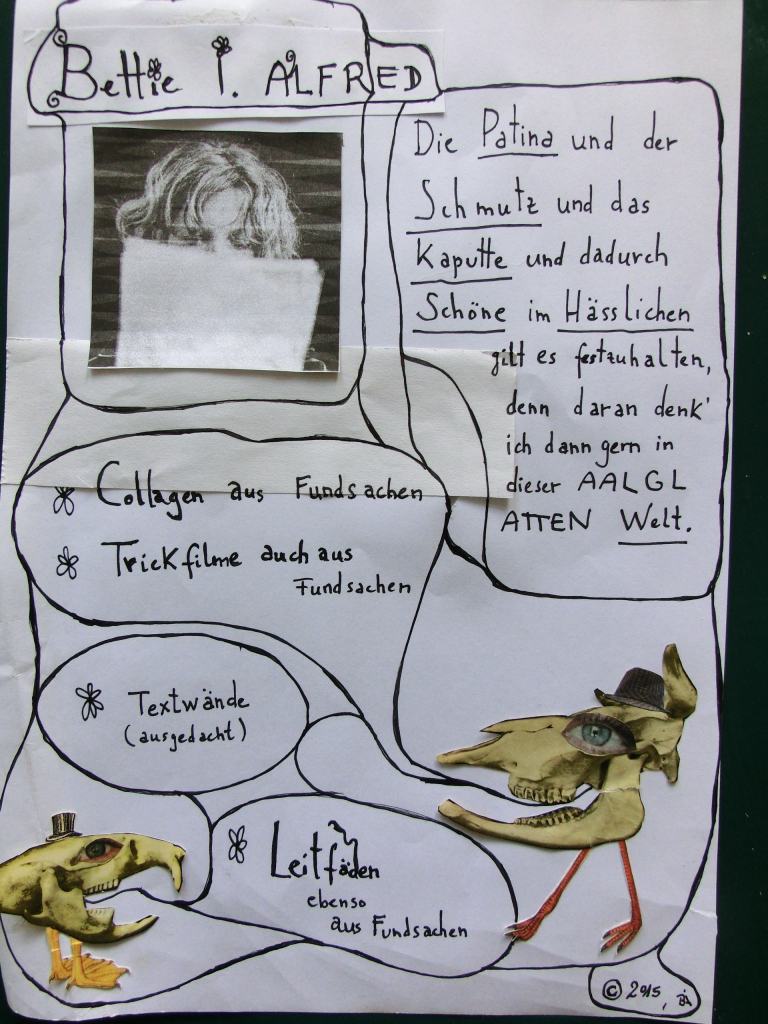 Bettie I. ALFRED
Die Patina und der
Schmutz und das
Kaputte und dadurch
Schöne im Hässlichen
gilt es festzuhalten,
denn daran denk'
ich dann gern in
dieser AALGL
ATTEN Welt.
Collagen aus Fundsachen
Trickfilme auch aus
Fundsachen
Textwände
(ausgedacht)
Leitfäden
ebenso
aus Fundsachen
© 2015,